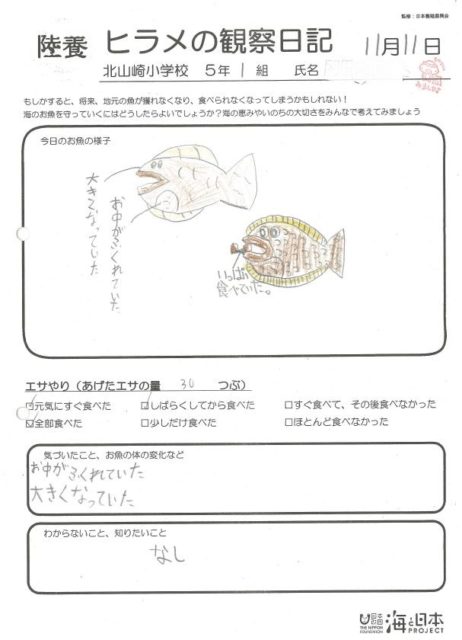 監修：日本養殖振興会
陸養 ヒラメの観察日記 11月11日
北山崎小学校 5年 1組 氏名
もしかすると、将来、地元の魚が獲れなくなり、食べられなくなってしまうかもしれない！
海のお魚を守っていくにはどうしたらよいでしょうか？海の恵みやいのちの大切さをみんなで考えてみましょう
今日のお魚の様子
大きくなっていた
お中がふくれていた
いっぱい
食べていた。
エサやり（あげたエサの量 30 つぶ）
☑元気にすぐ食べた ☑しばらくしてから食べた □すぐ食べて、その後食べなかった
☑全部食べた □少しだけ食べた □ほとんど食べなかった
気づいたこと、お魚の体の変化など
お中がふくれていた
大きくなっていた
わからないこと、知りたいこと
なし
日本財団
THE NIPPON
FOUNDATION
海と日本
PROJECT